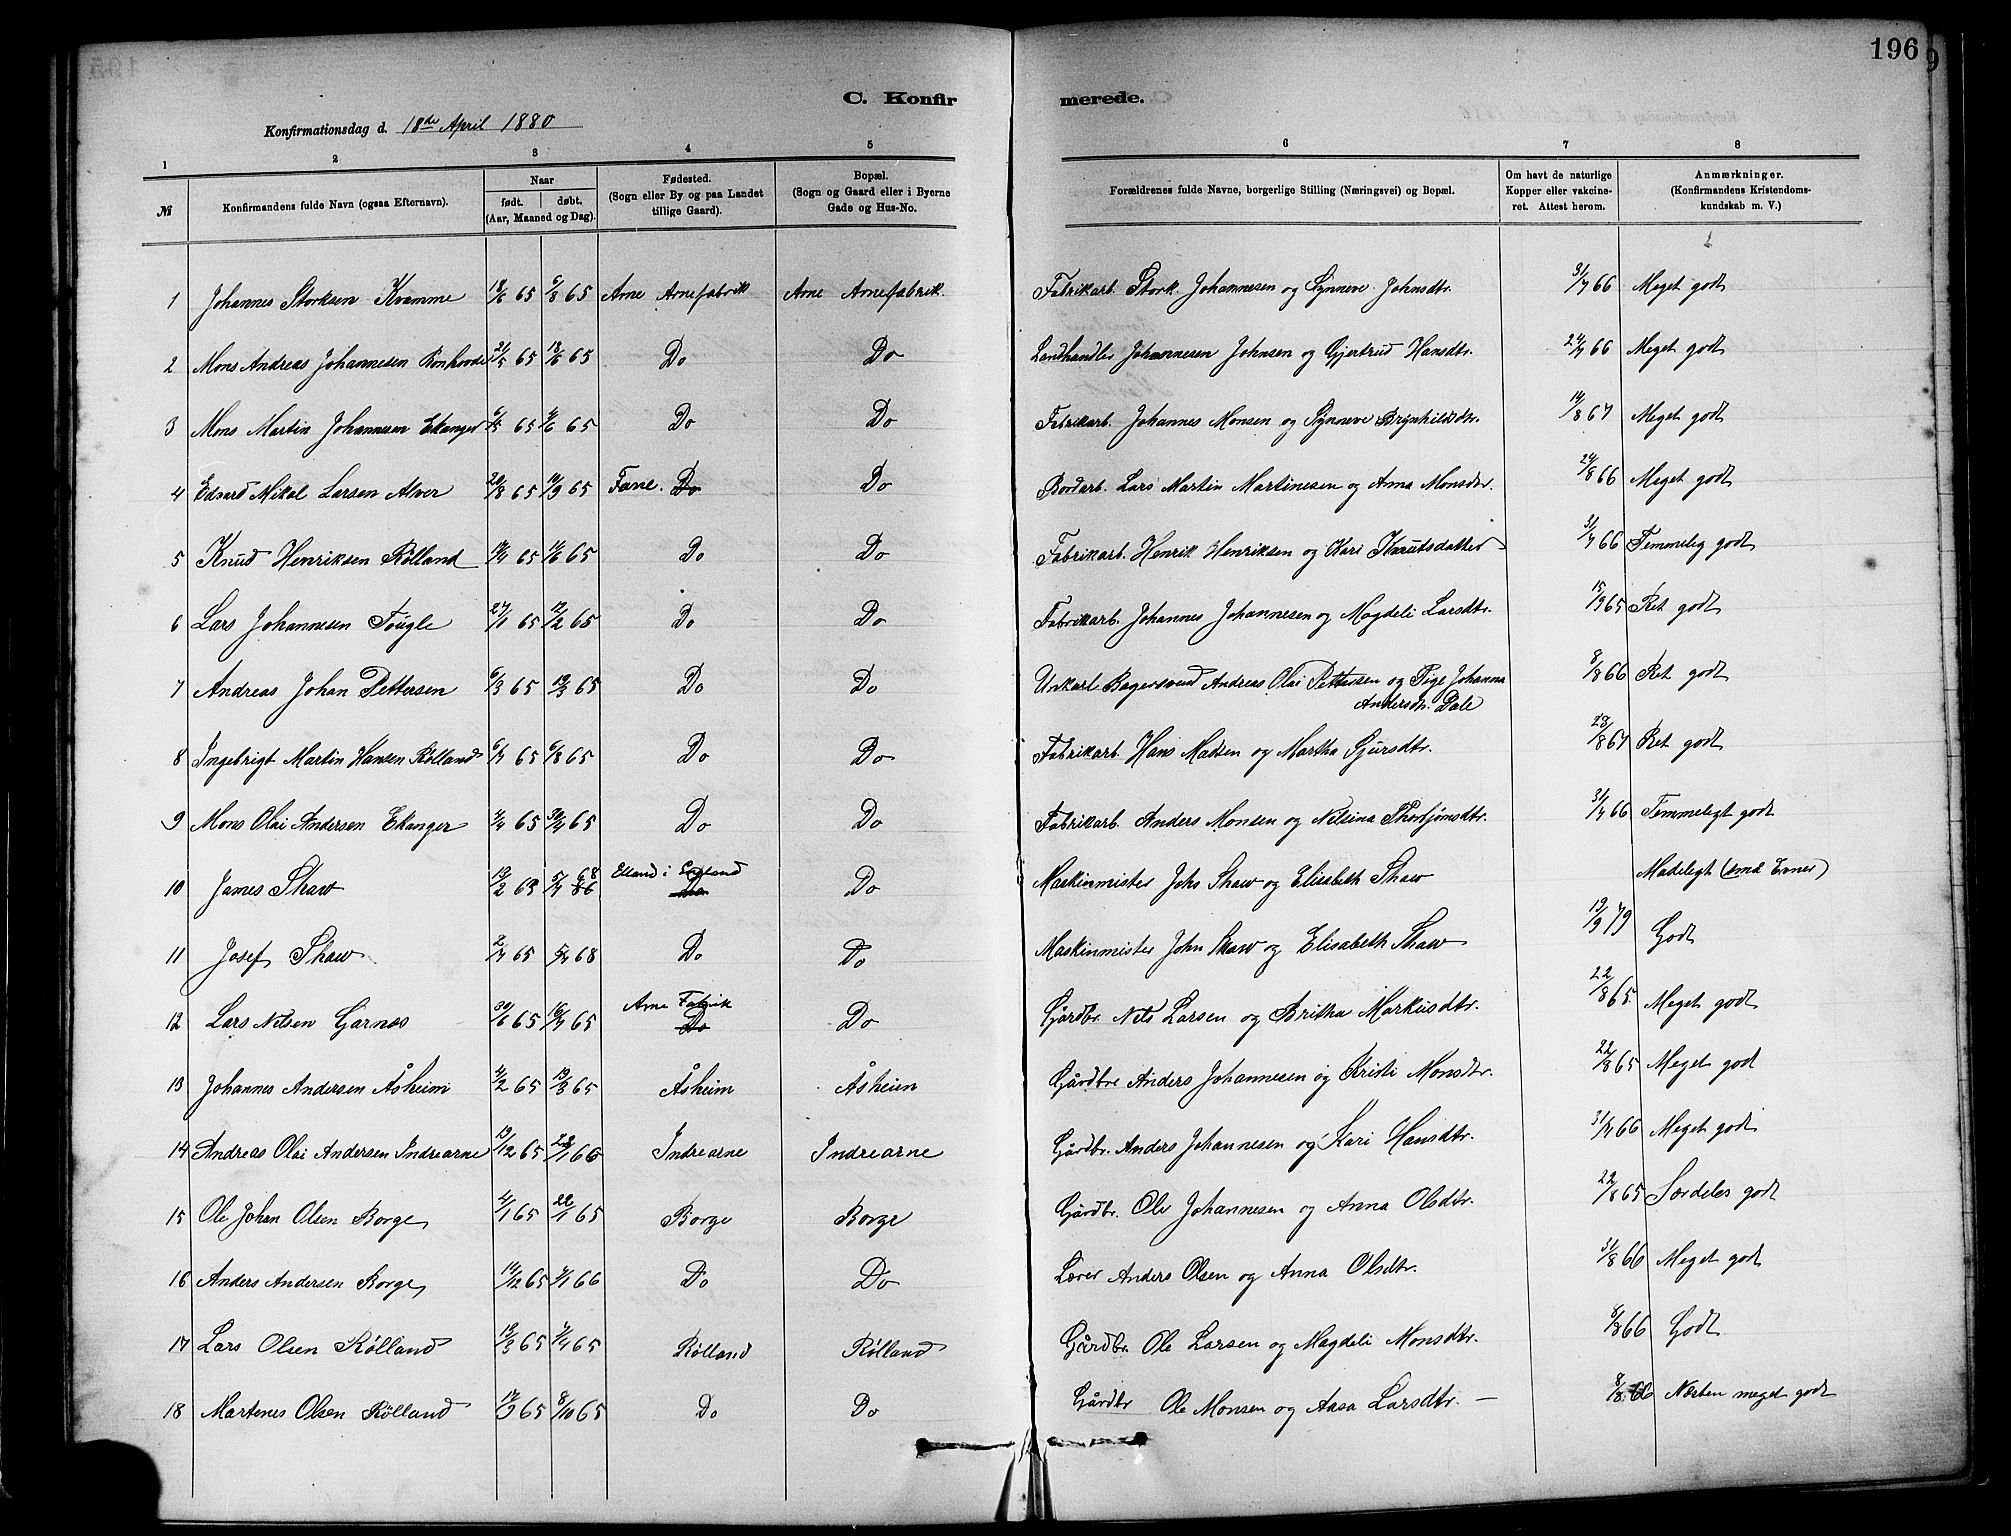 196
C. Konfirmerede.
Konfirmationsdag d. 18de April 1880
1 2 3 4 5 6 7 8
№ Konfirmandens fulde Navn (ogsaa Efternavn). Naar født. døbt. (Aar, Maaned og Dag). Fødested. (Sogn eller By og paa Landet tillige Gaard). Bopæl. (Sogn og Gaard eller i Byerne Gade og Hus-No. Forældrenes fulde Navne, borgerlige Stilling (Næringsvei) og Bopæl. Om havt de naturlige Kopper eller vakcineret. Attest herom. Anmærkninger. (Konfirmandens Kristendomskundskab m. V.)
1 Johannes Storksen Kvamme 18/6 65 6/8 65 Arne Arnefabrik Arne Arnefabrik. Fabrikarb. Stork Johannesen og Synneve Johnsdtr. 31/7 66 Meget godt
2 Mons Andreas Johannesen 21/5 65 18/6 65 Do Do Landhandler Johannesen Johnsen og Gjertrud Hansdtr. 24/7 66 Meget godt
3 Mons Martin Johannesen Ekanger 65 65 Do Do Fabrikarb. Johannes Monsen og Synneve Brynhildsdtr. 14/8 67 Meget godt
4 Edvard Mikal Larsen Alver 20/8 65 65 Fane. Do Do Bordarb. Lars Martin Martinesen og Anna Monsdtr. 24/8 66 Meget godt
5 Knud Henriksen Rølland 65 65 Do Do Fabrikarb. Henrik Henriksen og Kari Knutsdatter 31/7 66 Temmeleg godt
6 Lars Johannesen Tougle 27/1 65 12/2 65 Do Do Fabrikarb. Johannes Johannesen og Magdeli Larsdtr. 15/9 65 Ret godt
7 Andreas Johan Pettersen 6/3 65 19/3 65 Do Do Unkarl Bagersvend Andreas Olai Pettersen og Pige Johanna 8/8 66 Ret godt
Andersdtr. Dale
8 Ingebrigt Martin Hansen Rølland 6/7 65 6/8 65 Do Do Fabrikarb. Hans Madsen og Martha Sjursdtr. 23/8 67 Ret godt
9 Mons Olai Andersen Ekanger 4/4 65 30/4 65 Do Do Fabrikarb. Anders Monsen og Nilsina Thorbjørnsdtr. 31/7 66 Temmeligt godt
10 James Shaw 19/2 63 5/7 68 Elland i England Do Do Maskinmister Johs Shaw og Elisabeth Shaw Madeligt (smd Evner)
11 Josef Shaw 2/7 65 5/7 68 Do Do Maskinmister John Shaw og Elisabeth Shaw 19/9 79 Godt
12 Lars Nilsen Garnes 30/6 65 16/7 65 Arne Fabrik Do Do Gårdbr. Nels Larsen og Britha Markusdtr. 22/8 65 Meget godt
13 Johannes Andersen Åsheim 4/2 65 19/3 65 Åsheim Åsheim Gårdbr Anders Johannesen og Kristi Monsdtr. 22/8 65 Meget god
14 Andreas Olai Andersen Indrearne 19/12 65 28/1 66 Indrearne Indrearne Gårdbr. Anders Johannesen og Kari Hansdtr. 31/7 66 Meget godt
15 Ole Johan Olsen Borge 4/1 65 22/1 65 Borge Borge Gårdbr. Ole Johannesen og Anna Olsdtr. 22/8 65 Særdeles godt
16 Anders Andersen Borge 14/12 65 7/1 66 Do Do Lærer Anders Olsen og Anna Olsdtr. 31/8 66 Meget godt
17 Lars Olsen Rølland 19/3 65 7/4 65 Rølland Rølland Gårdbr. Ole Larsen og Magdeli Monsdtr. 8/8 66 Godt
18 Martenes Olsen Rølland 17/9 65 8/10 65 Do Do Gårdbr Ole Monsen og Aasa Larsdtr. — 8/8 66 Næsten meget godt